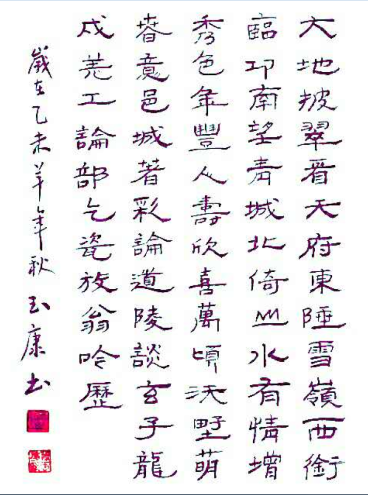 大地披翠看天府東陲雪嶺西銜
臨邛南望青城北倚山水有情增
秀色年豐人壽欣喜萬頃沃野萌
春意邑城著彩論道陵談玄子龍
戍羌工論部乞瓷放翁吟歷
歲在乙未羊年秋玉康书